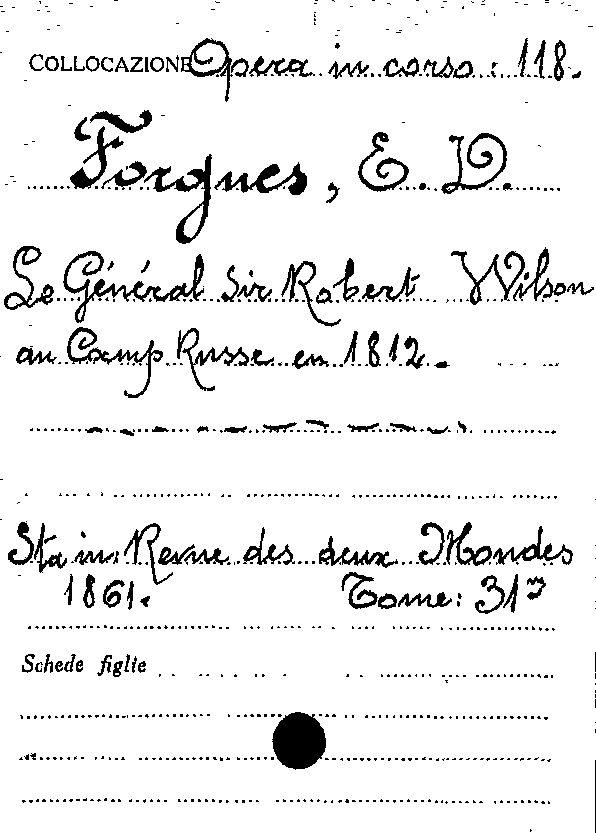 COLLOCAZIONE Opera in corso: 118.
Forgues, E. D.
Le Général Sir Robert Wilson
au Camp Russe en 1812.
Sta in: Revue des deux Mondes
1861. Tome: 31m
Schede figlie